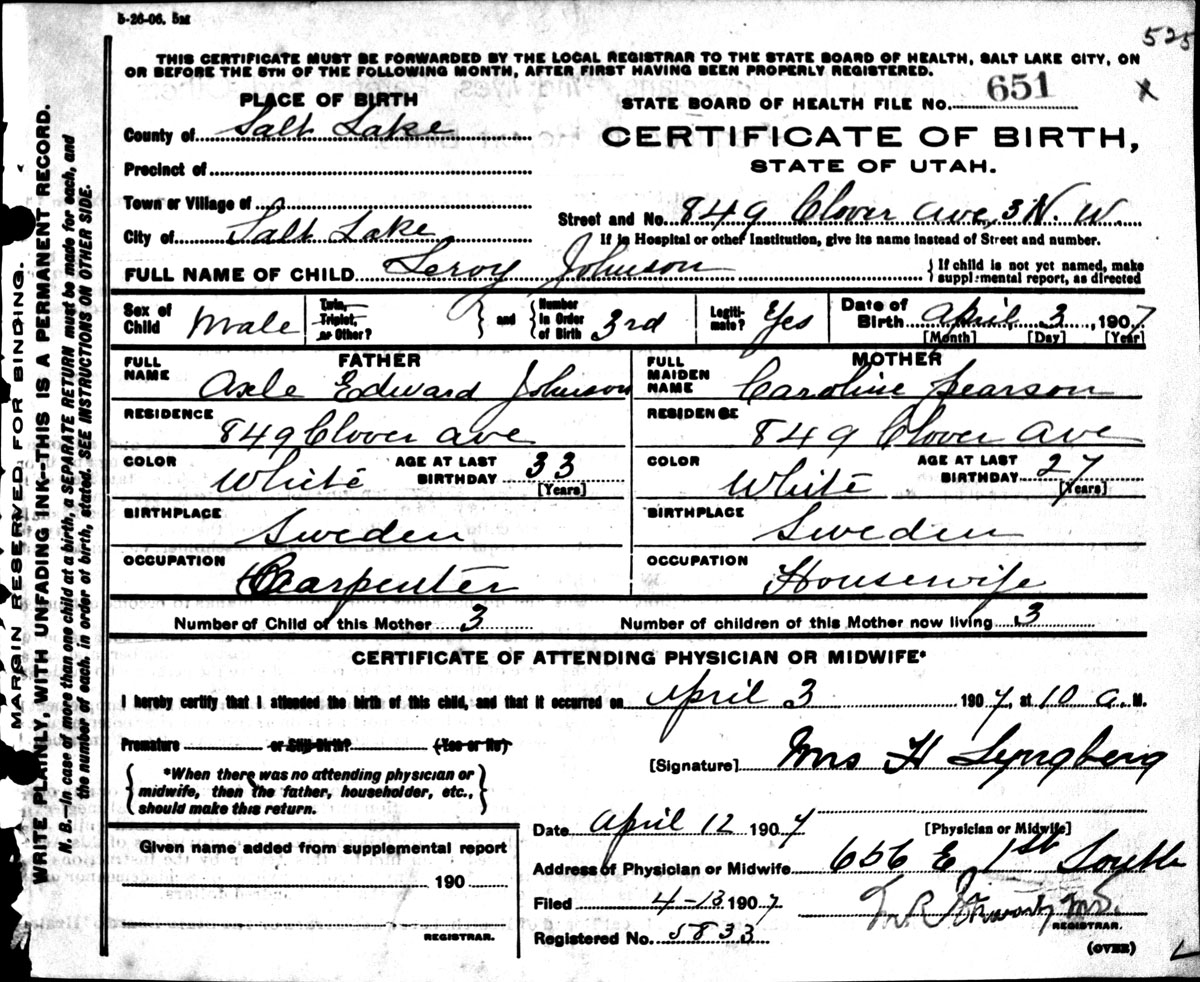 5-26-06. 5M
525
THIS CERTIFICATE MUST BE FORWARDED BY THE LOCAL REGISTRAR TO THE STATE BOARD OF HEALTH, SALT LAKE CITY, ON
OR BEFORE THE 5TH OF THE FOLLOWING MONTH, AFTER FIRST HAVING BEEN PROPERLY REGISTERED.
PLACE OF BIRTH
STATE BOARD OF HEALTH FILE No. 651
County of Salt Lake
CERTIFICATE OF BIRTH,
STATE OF UTAH.
Precinct of
Town or Village of
Street and No. 849 Clover Ave, 3 N. W.
City of Salt Lake
If in Hospital or other Institution, give its name instead of Street and number.
FULL NAME OF CHILD Leroy Johnson
If child is not yet named, make
supplemental report, as directed
Sex of Child Male
Twin, Triplet, or Other?
and
Number in Order of Birth 3rd
Legitimate? Yes
Date of Birth April 3, 1907
[Month] [Day] [Year]
FATHER
FULL NAME Axle Edward Johnson
RESIDENCE 849 Clover Ave
COLOR White
AGE AT LAST BIRTHDAY 33
[Years]
BIRTHPLACE Sweden
OCCUPATION Carpenter
MOTHER
FULL MAIDEN NAME Caroline Pearson
RESIDENCE 849 Clover Ave
COLOR White
AGE AT LAST BIRTHDAY 27
[Years]
BIRTHPLACE Sweden
OCCUPATION Housewife
Number of Child of this Mother 3
Number of children of this Mother now living 3
CERTIFICATE OF ATTENDING PHYSICIAN OR MIDWIFE*
I hereby certify that I attended the birth of this child, and that it occurred on April 3 1907, at 10 a. M.
Premature or Still Birth? (Yes or No)
[Signature] Mrs H Lyngberg
*When there was no attending physician or
midwife, then the father, householder, etc.,
should make this return.
Date April 12 1907
[Physician or Midwife]
Given name added from supplemental report
190
REGISTRAR.
Address of Physician or Midwife 656 E 1st South
Filed 4-13 1907
M.D.
REGISTRAR.
Registered No. 5833
(OVER)
MARGIN RESERVED FOR BINDING.
WRITE PLAINLY, WITH UNFADING INK--THIS IS A PERMANENT RECORD.
N. B.—In case of more than one child at a birth, a SEPARATE RETURN must be made for each, and
the number of each, in order of birth, stated. SEE INSTRUCTIONS ON OTHER SIDE.